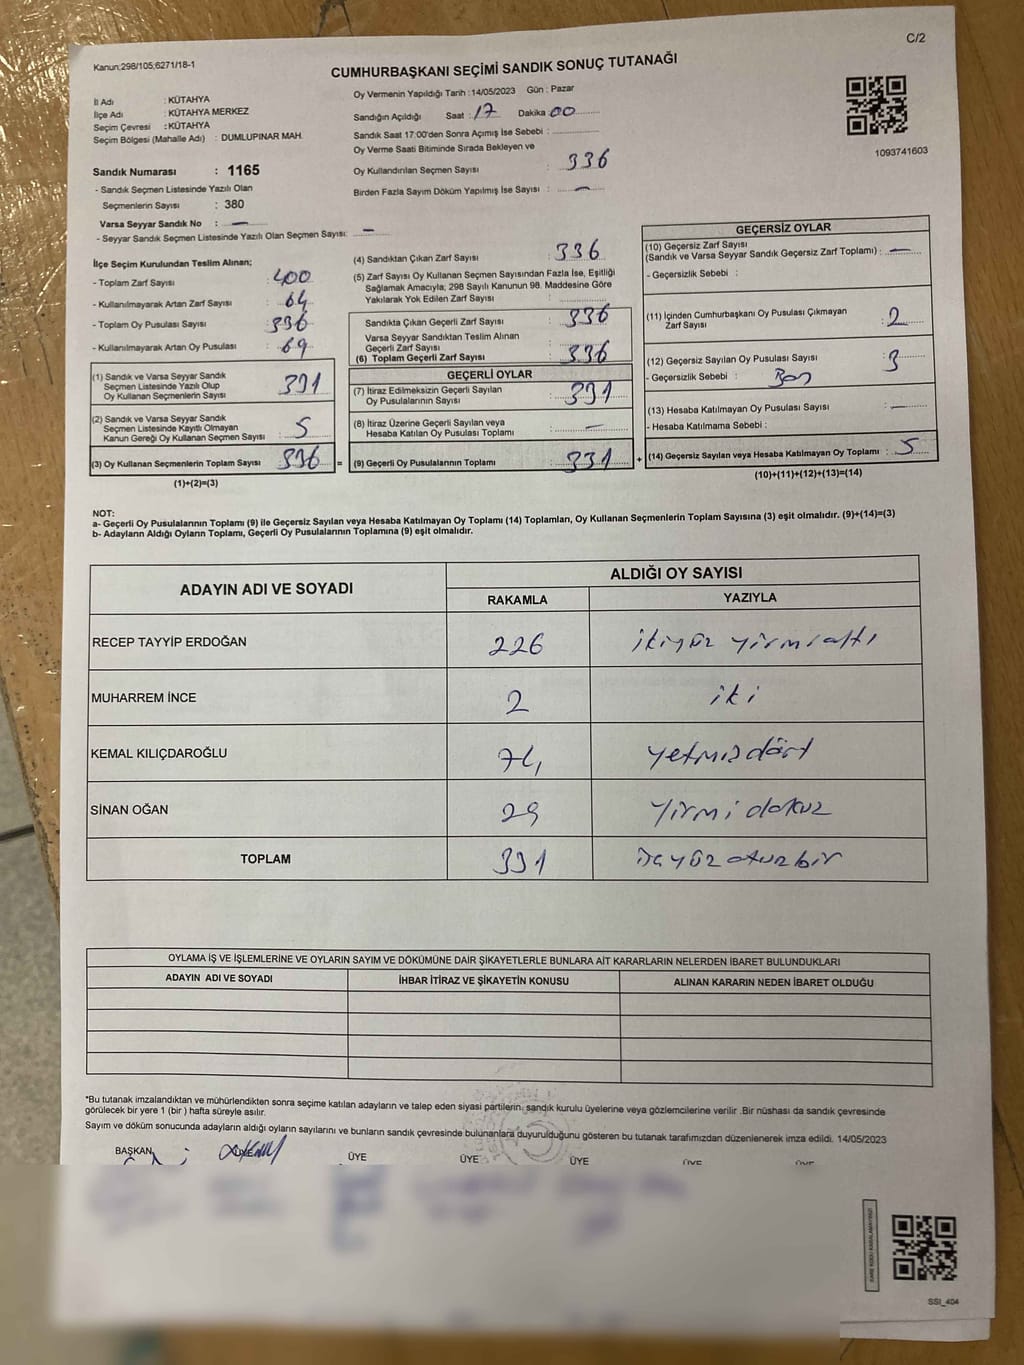 C/2
Kanun;298/105;6271/18-1
CUMHURBAŞKANI SEÇİMİ SANDIK SONUÇ TUTANAĞI
İl Adı : KÜTAHYA
İlçe Adı : KÜTAHYA MERKEZ
Seçim Çevresi : KÜTAHYA
Seçim Bölgesi (Mahalle Adı) : DUMLUPINAR MAH.
Sandık Numarası : 1165
- Sandık Seçmen Listesinde Yazılı Olan
Seçmenlerin Sayısı : 380
Varsa Seyyar Sandık No : —
- Seyyar Sandık Seçmen Listesinde Yazılı Olan Seçmen Sayısı: —
Oy Vermenin Yapıldığı Tarih :14/05/2023 Gün : Pazar
Sandığın Açıldığı Saat : 17 Dakika : 00
Sandık Saat 17:00'den Sonra Açımış İse Sebebi :
Oy Verme Saati Bitiminde Sırada Bekleyen ve
Oy Kullandırılan Seçmen Sayısı : 336
Birden Fazla Sayım Döküm Yapılmış İse Sayısı : —
1093741603
İlçe Seçim Kurulundan Teslim Alınan;
- Toplam Zarf Sayısı : 400
- Kullanılmayarak Artan Zarf Sayısı : 64
- Toplam Oy Pusulası Sayısı : 336
- Kullanılmayarak Artan Oy Pusulası : 69
(1) Sandık ve Varsa Seyyar Sandık
Seçmen Listesinde Yazılı Olup
Oy Kullanan Seçmenlerin Sayısı : 331
(2) Sandık ve Varsa Seyyar Sandık
Seçmen Listesinde Kayıtlı Olmayan
Kanun Gereği Oy Kullanan Seçmen Sayısı : 5
(3) Oy Kullanan Seçmenlerin Toplam Sayısı : 336 =
(1)+(2)=(3)
(4) Sandıktan Çıkan Zarf Sayısı : 336
(5) Zarf Sayısı Oy Kullanan Seçmen Sayısından Fazla İse, Eşitliği
Sağlamak Amacıyla; 298 Sayılı Kanunun 98. Maddesine Göre
Yakılarak Yok Edilen Zarf Sayısı :
Sandıkta Çıkan Geçerli Zarf Sayısı : 336
Varsa Seyyar Sandıktan Teslim Alınan
Geçerli Zarf Sayısı :
(6) Toplam Geçerli Zarf Sayısı : 336
GEÇERLİ OYLAR
(7) İtiraz Edilmeksizin Geçerli Sayılan
Oy Pusulalarının Sayısı : 331
(8) İtiraz Üzerine Geçerli Sayılan veya
Hesaba Katılan Oy Pusulası Toplamı : —
(9) Geçerli Oy Pusulalarının Toplamı : 331 +
GEÇERSİZ OYLAR
(10) Geçersiz Zarf Sayısı
(Sandık ve Varsa Seyyar Sandık Geçersiz Zarf Toplamı) : —
- Geçersizlik Sebebi :
(11) İçinden Cumhurbaşkanı Oy Pusulası Çıkmayan
Zarf Sayısı : 2
(12) Geçersiz Sayılan Oy Pusulası Sayısı : 3
- Geçersizlik Sebebi :
(13) Hesaba Katılmayan Oy Pusulası Sayısı : —
- Hesaba Katılmama Sebebi :
(14) Geçersiz Sayılan veya Hesaba Katılmayan Oy Toplamı : 5
(10)+(11)+(12)+(13)=(14)
NOT:
a- Geçerli Oy Pusulalarının Toplamı (9) ile Geçersiz Sayılan veya Hesaba Katılmayan Oy Toplamı (14) Toplamları, Oy Kullanan Seçmenlerin Toplam Sayısına (3) eşit olmalıdır. (9)+(14)=(3)
b- Adayların Aldığı Oyların Toplamı, Geçerli Oy Pusulalarının Toplamına (9) eşit olmalıdır.
ADAYIN ADI VE SOYADI ALDIĞI OY SAYISI
RAKAMLA YAZIYLA
RECEP TAYYİP ERDOĞAN 226 ikiyüz yirmialtı
MUHARREM İNCE 2 iki
KEMAL KILIÇDAROĞLU 74 yetmişdört
SİNAN OĞAN 29 yirmi dokuz
TOPLAM 331 üçyüzotuzbir
OYLAMA İŞ VE İŞLEMLERİNE VE OYLARIN SAYIM VE DÖKÜMÜNE DAİR ŞİKAYETLERLE BUNLARA AİT KARARLARIN NELERDEN İBARET BULUNDUKLARI
ADAYIN ADI VE SOYADI İHBAR İTİRAZ VE ŞİKAYETİN KONUSU ALINAN KARARIN NEDEN İBARET OLDUĞU
*Bu tutanak imzalandıktan ve mühürlendikten sonra seçime katılan adayların ve talep eden siyasi partilerin, sandık kurulu üyelerine veya gözlemcilerine verilir .Bir nüshası da sandık çevresinde
görülecek bir yere 1 (bir ) hafta süreyle asılır.
Sayım ve döküm sonucunda adayların aldığı oyların sayılarını ve bunların sandık çevresinde bulunanlara duyurulduğunu gösteren bu tutanak tarafımızdan düzenlenerek imza edildi. 14/05/2023
BAŞKAN ÜYE ÜYE ÜYE ÜYE ÜYE ÜYE
SSI_404